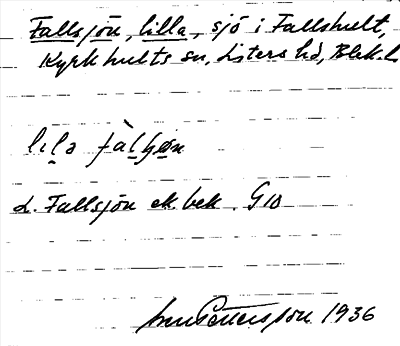 Fallsjön, lilla, sjö i Fallshult,
Kyrkhults sn, Listers hd, Blek. l.
L. Fallsjön ek. bek. G10
Pettersson 1936